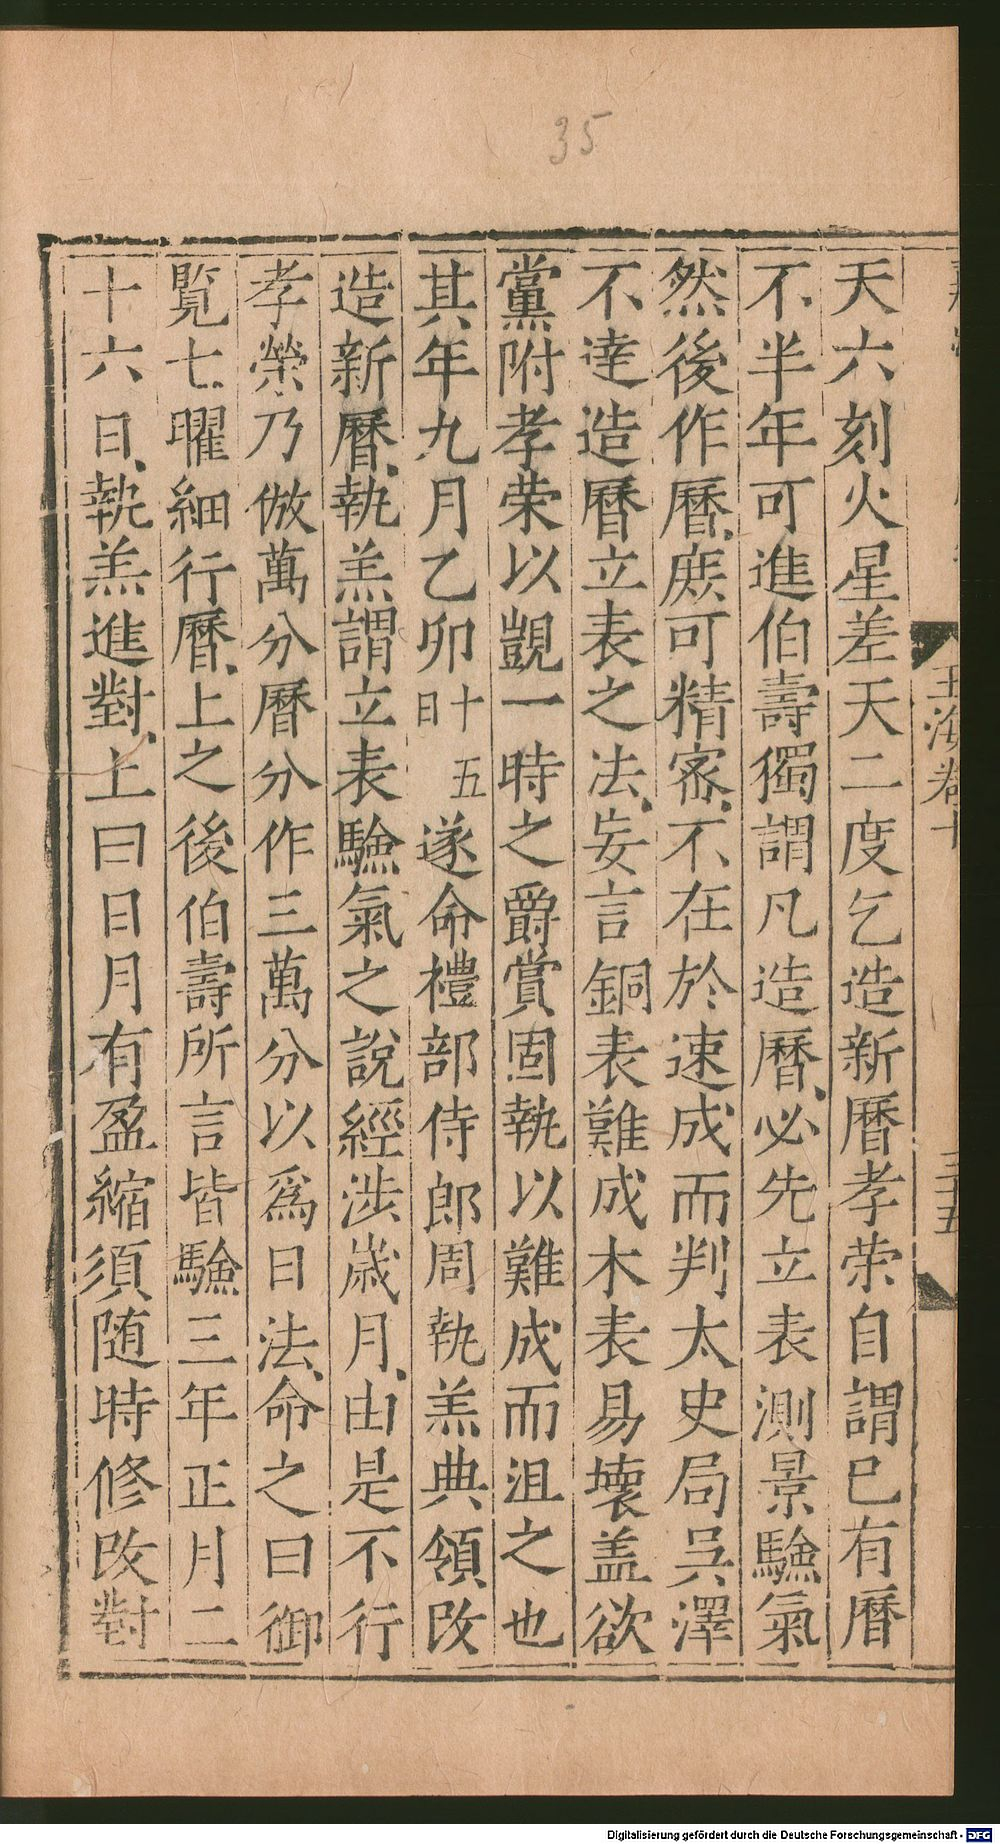 35
天六刻火星差天二度乞造新曆孝荣自謂已有曆
不半年可進伯壽獨謂凡造曆必先立表測景驗氣
然後作曆庻可精宻不在於速成而判太史局吳澤
不逹造曆立表之法妄言銅表難成木表易壞盖欲
黨附孝荣以覬一時之爵賞固執以難成而沮之也
其年九月乙卯十五日遂命禮部侍郎周執羔典領改
造新曆執羔謂立表驗氣之說經涉歲月由是不行
孝榮乃倣萬分曆分作三萬分以爲日法命之曰御
覧七曜細行曆上之後伯壽所言皆驗三年正月二
十六日執羔進對上曰日月有盈縮須随時修改對
玉海卷十
三十五
Digitalisierung gefördert durch die Deutsche Forschungsgemeinschaft - DFG